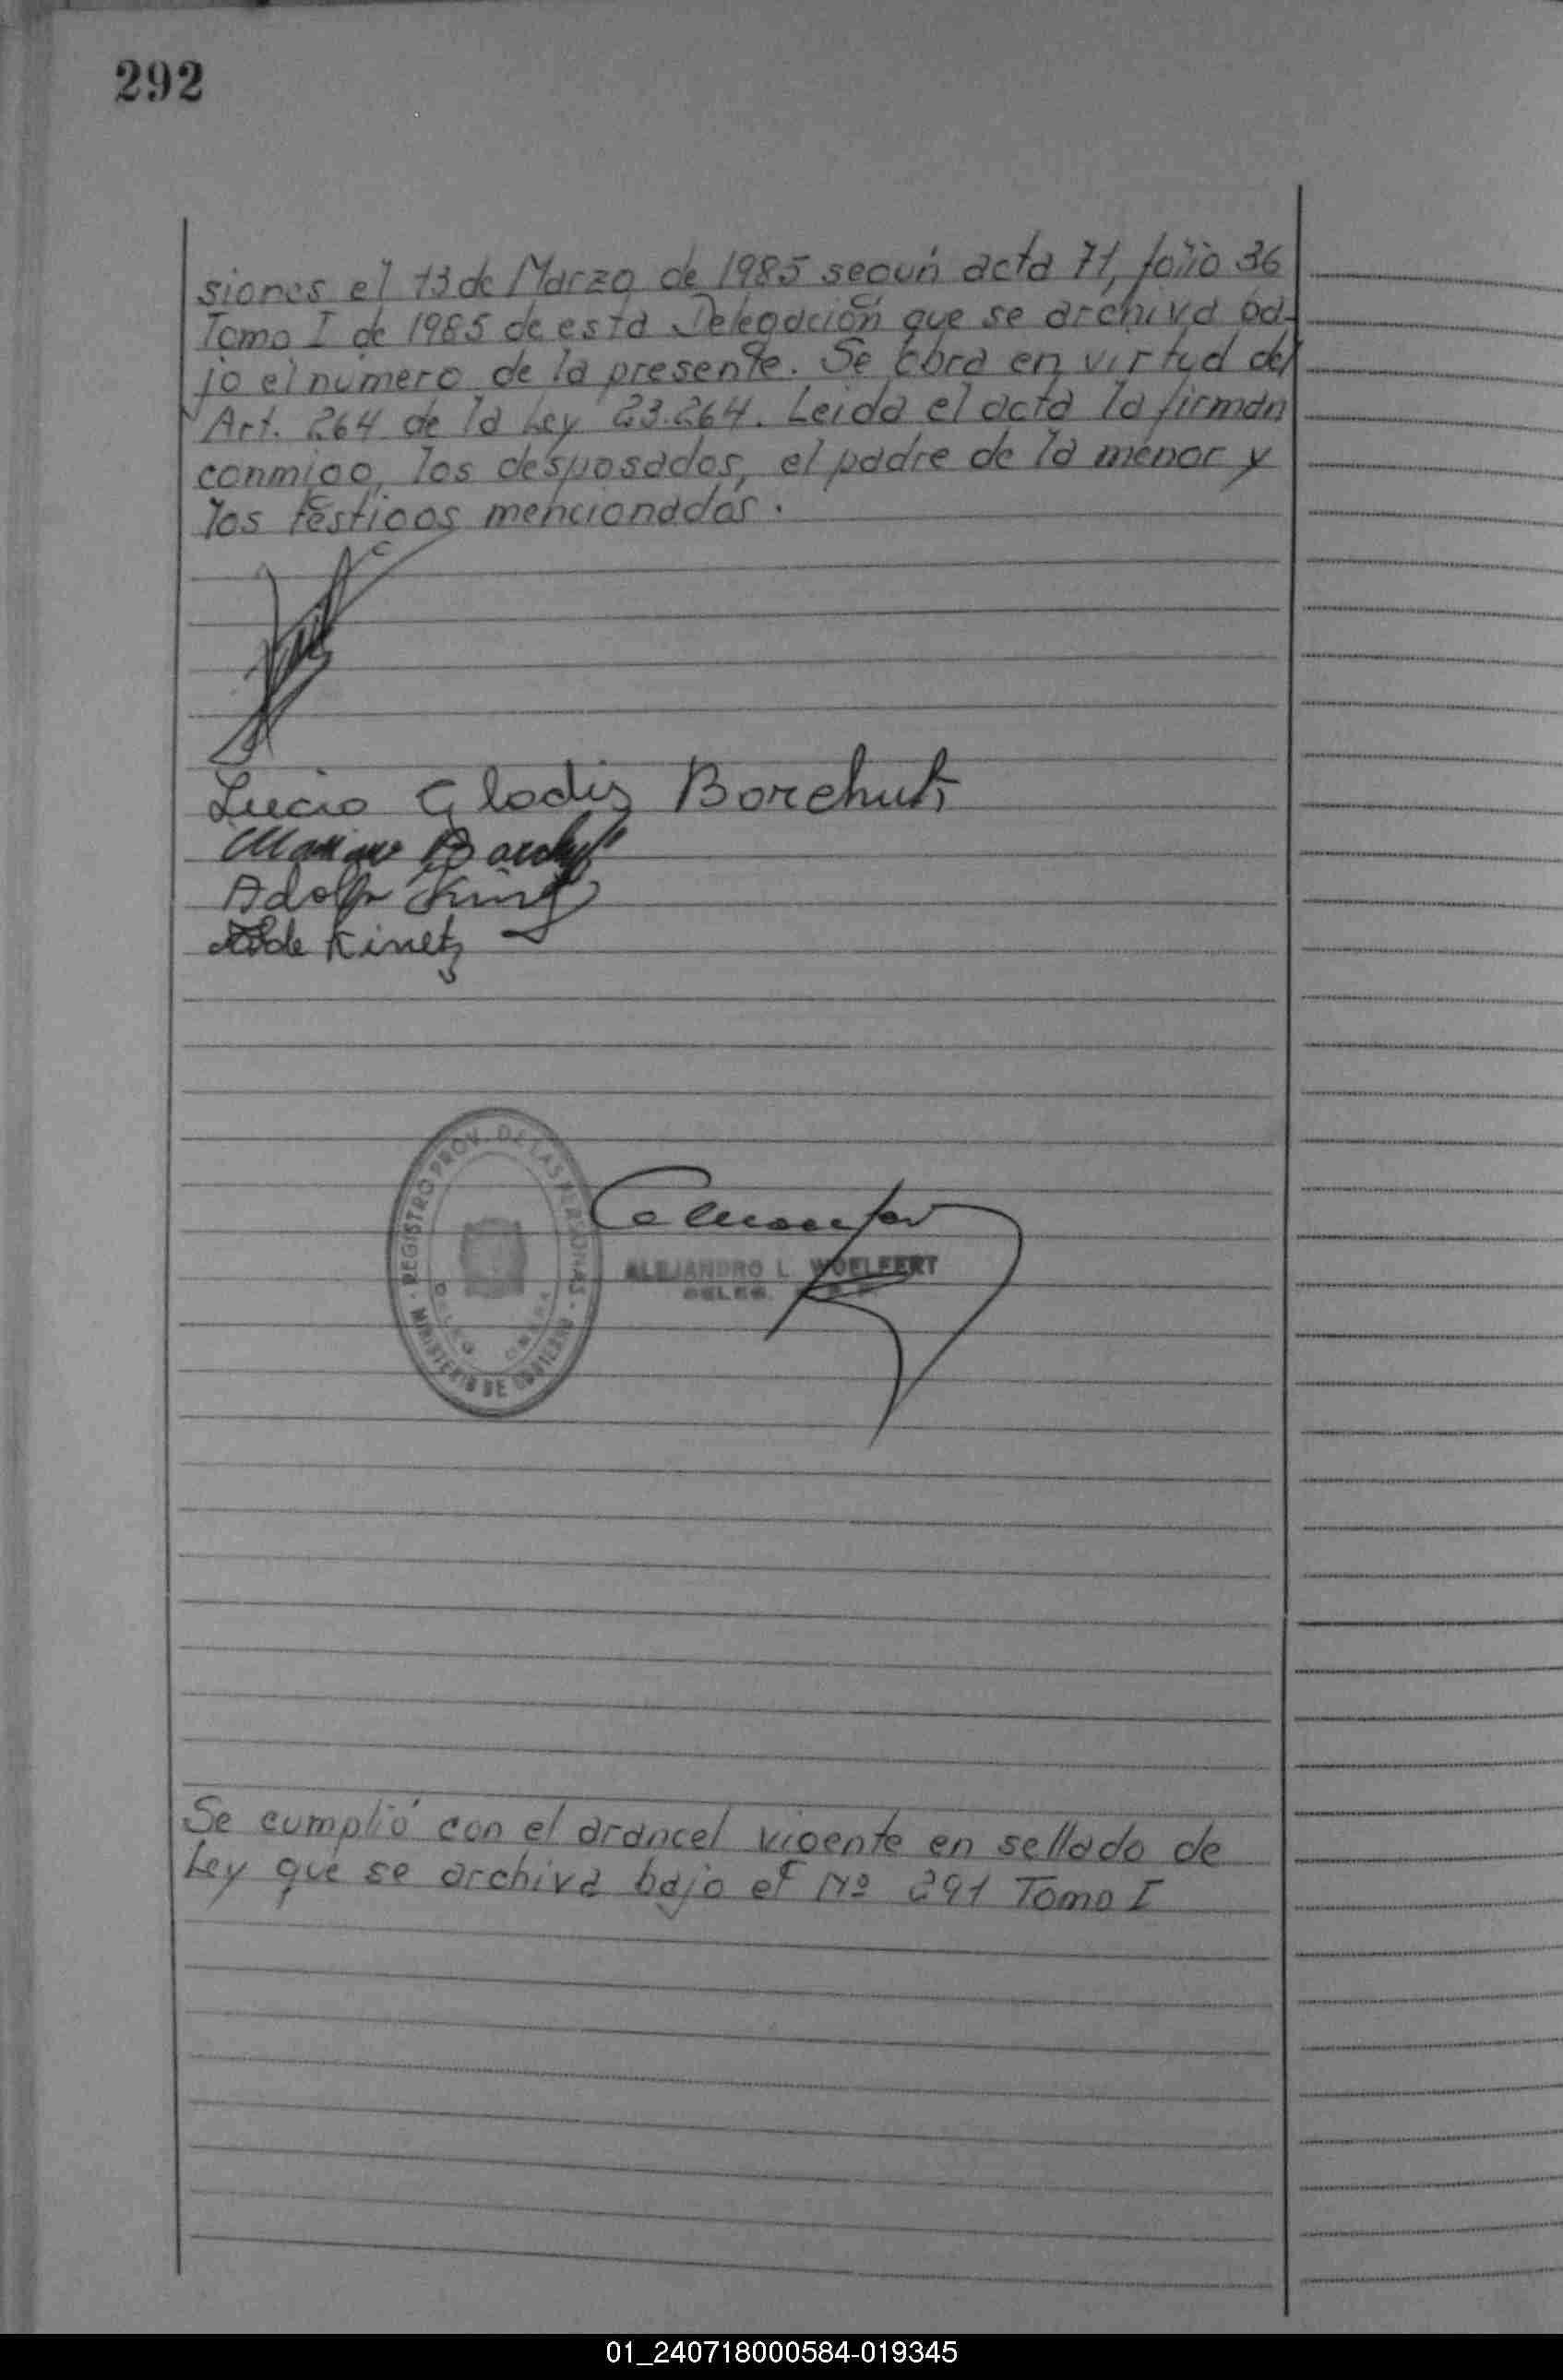 292
siones el 13 de Marzo de 1985 según acta 71, folio 36
Tomo I de 1985 de esta Delegación que se archiva ba-
jo el número de la presente. Se obra en virtud del
Art. 264 de la Ley 23.264. Leida el acta la firman
conmigo, los desposados, el padre de la menor y
los testigos mencionados.
Lucia Gladis
Adolfo
Kinetz
REGISTRO PROV. DE LAS PERSONAS
MINISTERIO DE GOBIERNO
ALEJANDRO L. WOELFERT
DELEG.
Se cumplió con el arancel vigente en sellado de
Ley que se archiva bajo el Nº 291 Tomo I
01_240718000584-019345